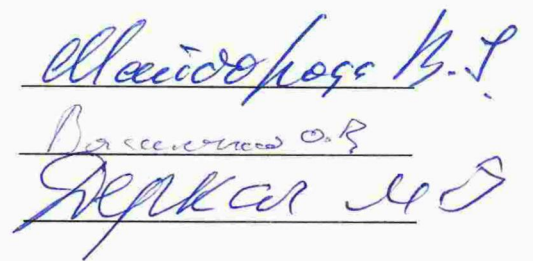 Майборода В.Г.
Василенко О.В
Деркач М О